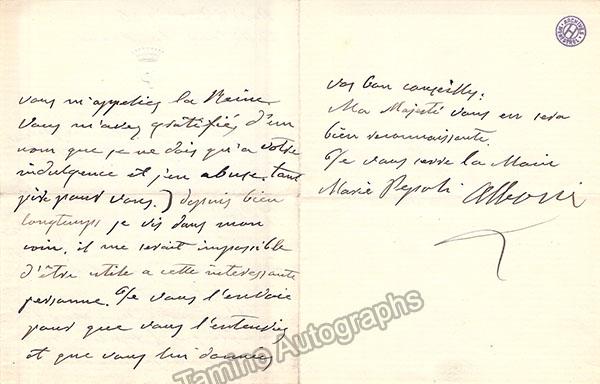 vous m'appeliez la Reine
vous m'avez gratifiée d'un
nom que je ne dois qu'a votre
indulgence et j'en abuse, tant
pire pour vous.) depuis bien
longtemps je vis dans mon
coin, il me serait impossible
d'être utile a cette intéressante
personne. Je vous l'envoie
pour que vous l'entendiez
et que vous lui donniez
vos bon conseills.
Ma Majesté vous en sera
bien reconnaissante.
Je vous serre la Main
Marie Pepoli Alboni
Tamino Autographs